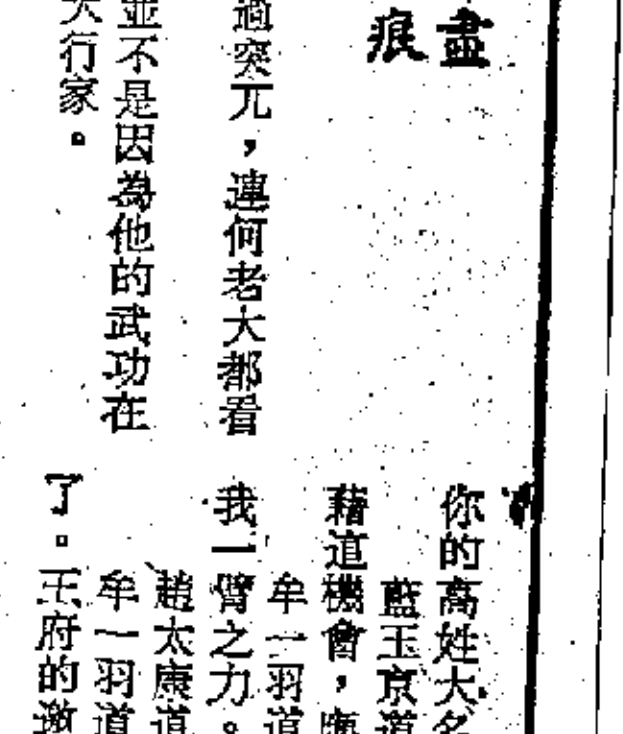 盡
痕
過突兀，連何老大都看
並不是因為他的武功在
大行家。
你的高姓大名
藍玉京道
藉這機會，
牟一羽道
我一臂之力。
趙太康道
牟一羽道
了。王府的邀